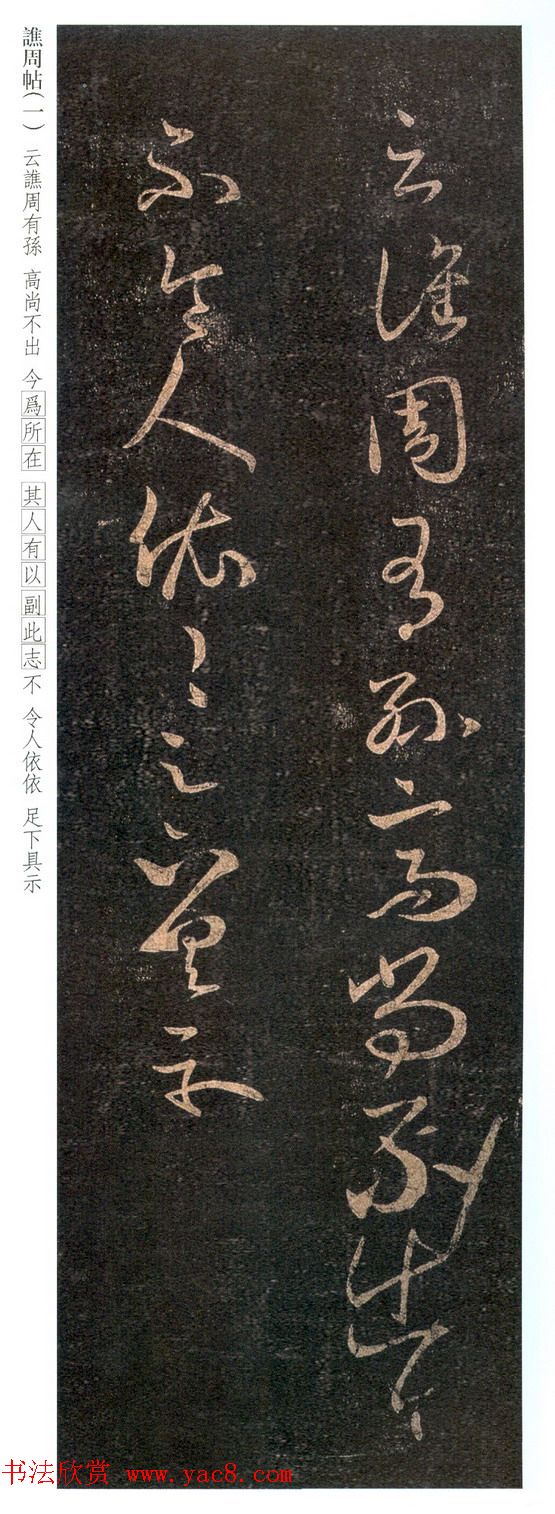 云譙周有孫高尚不出今
不令人依依足下具示
譙周帖(一) 云譙周有孫 高尚不出 今爲所在 其人有以副此志不 令人依依 足下具示
书法欣赏 www.yac8.com